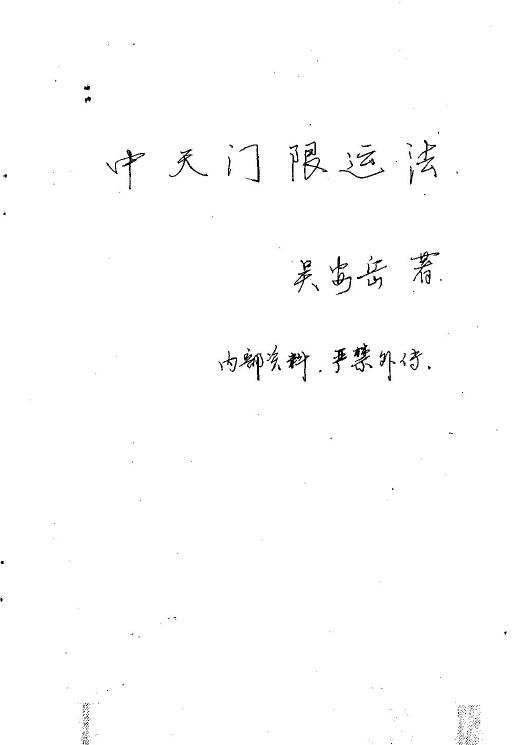 中天门限运法
吴安岳 著
内部资料，严禁外传．